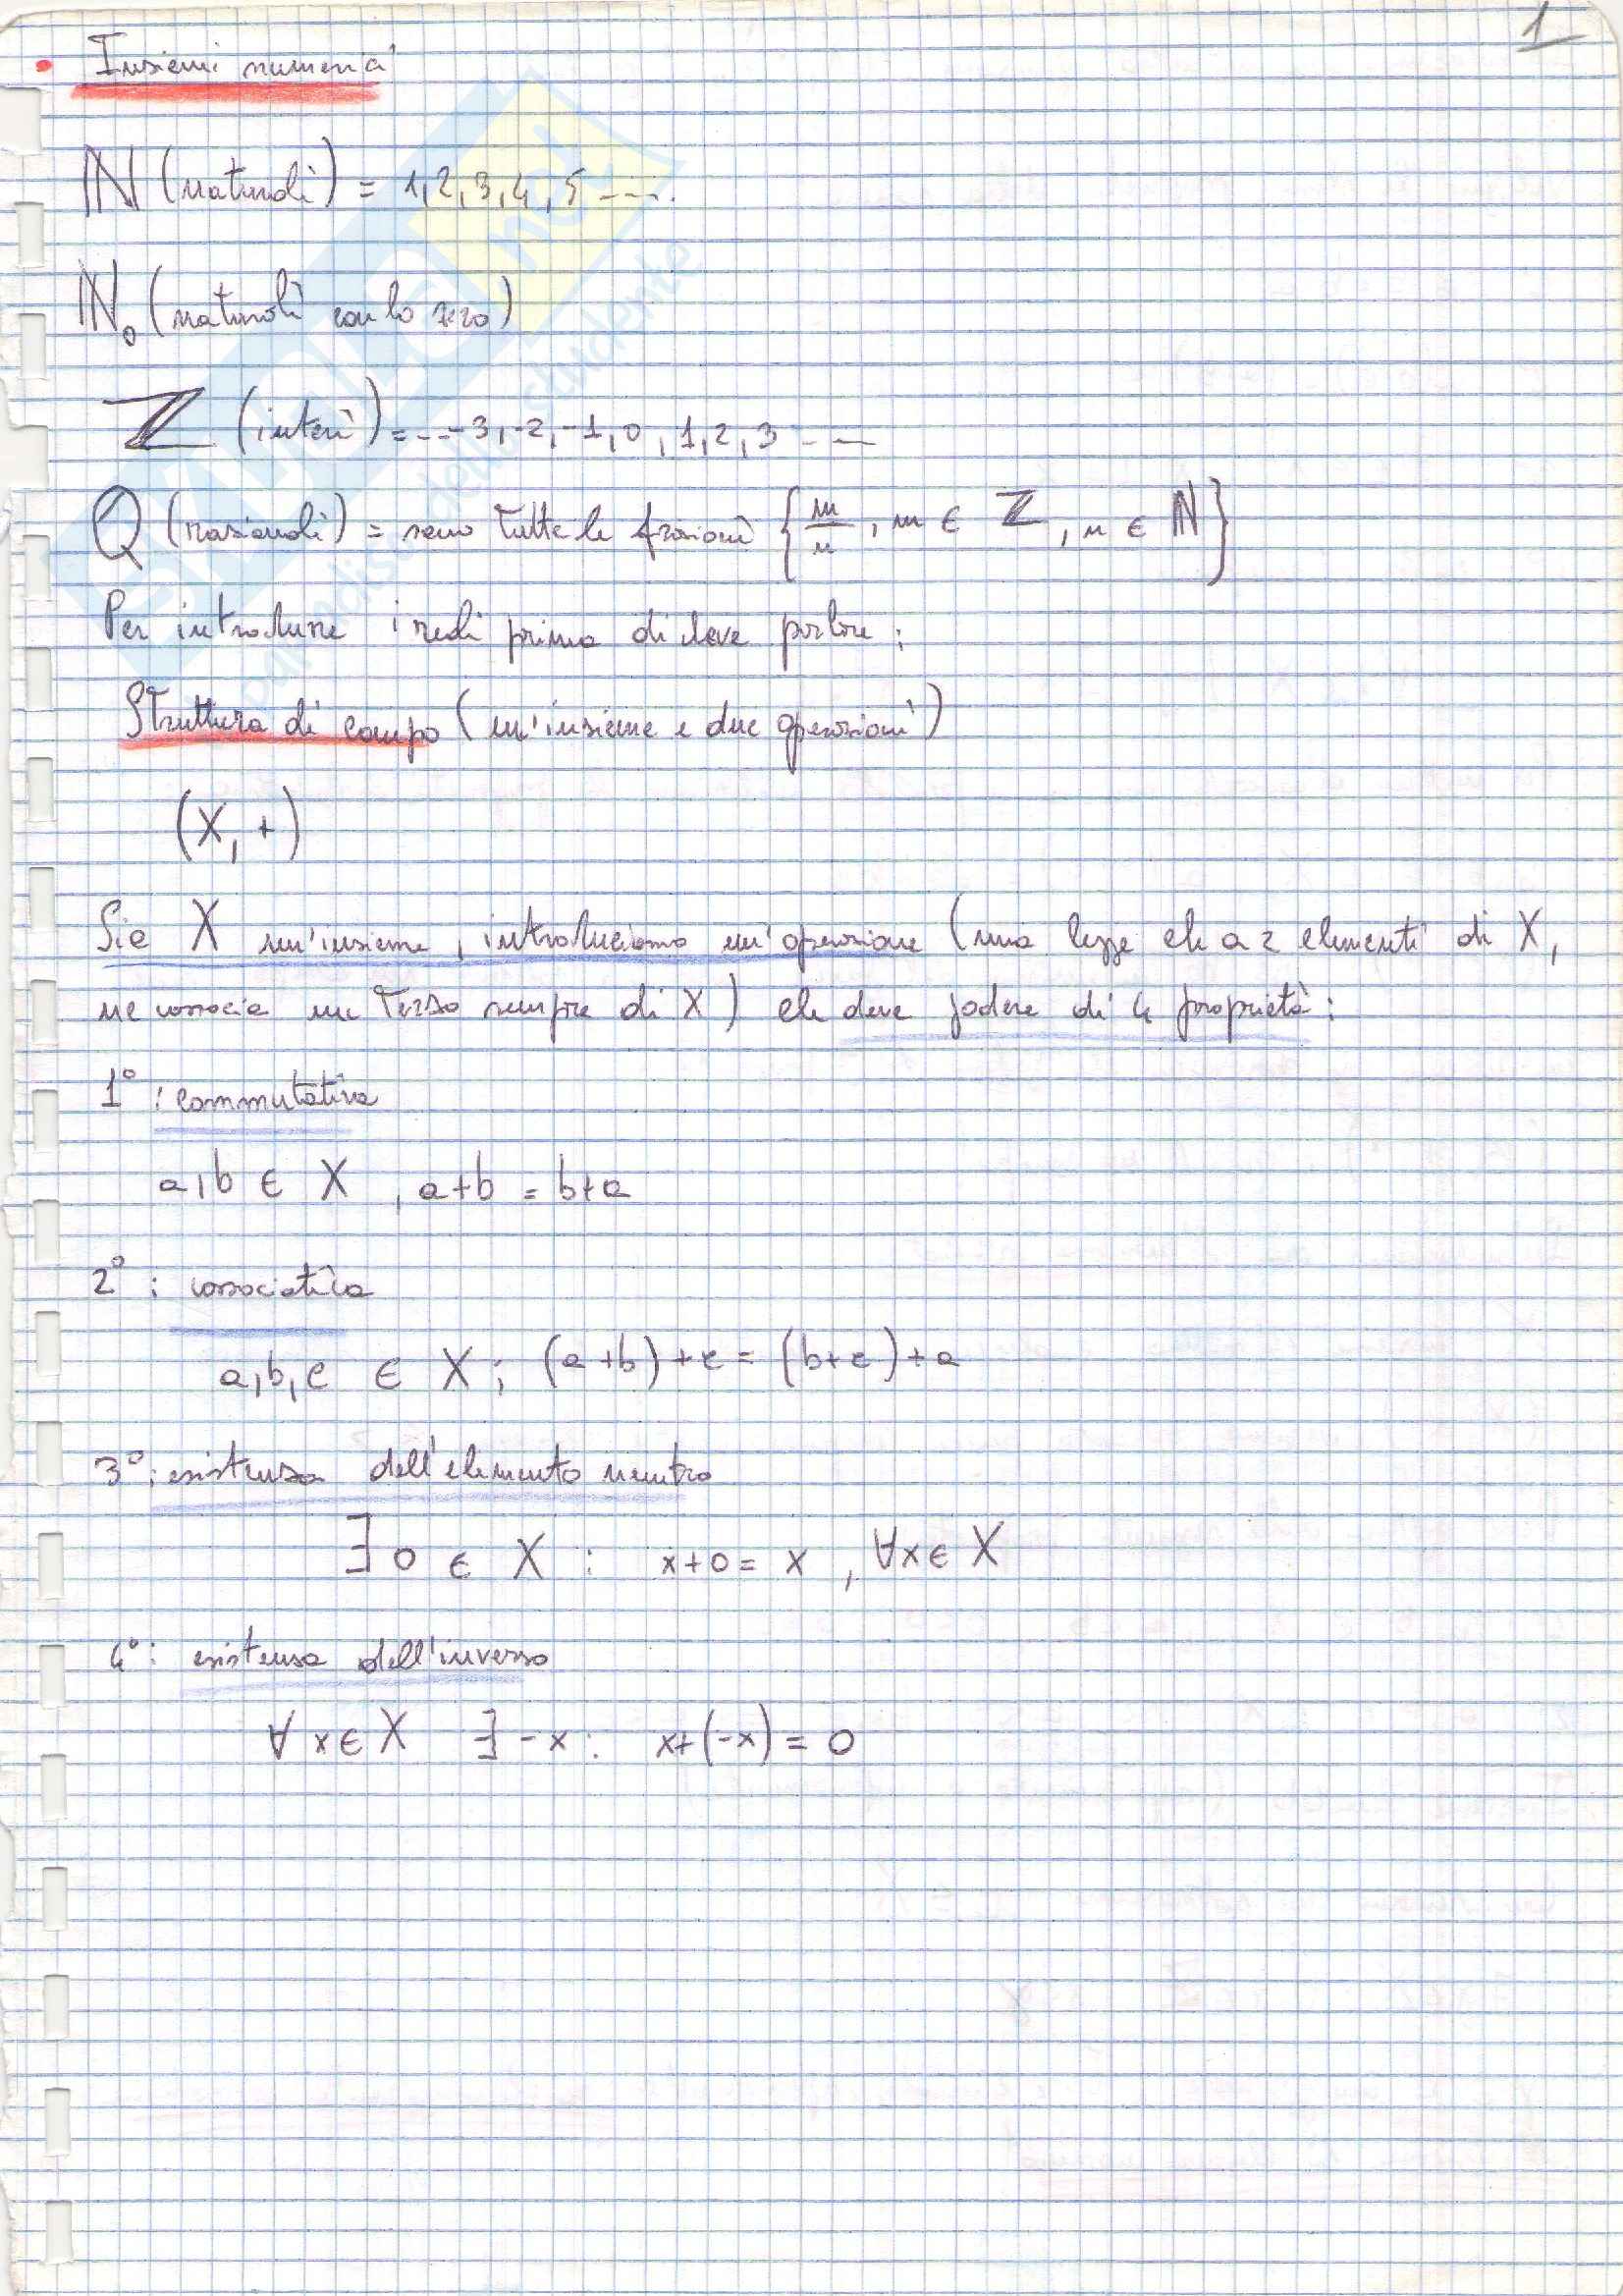 1
• Insiemi numerici
ℕ (naturali) = 1,2,3,4,5 ----.
ℕ₀ (naturali con lo zero)
ℤ (interi) = ..-3,-2,-1,0,1,2,3 -- —
Q (razionali) = sono tutte le frazioni { m/n , m ∈ ℤ , n ∈ ℕ }
Per introdurre i reali prima di deve parlare :
Struttura di campo ( un'insieme e due operazioni )
(X, +)
Sia X un'insieme, introduciamo un'operazione ( una legge che a 2 elementi di X,
ne associa un terzo sempre di X ) che deve godere di 4 proprietà :
1° : commutativa
a,b ∈ X , a+b = b+a
2° : associativa
a,b,c ∈ X ; (a+b)+c = (b+c)+a
3° : esistenza dell'elemento neutro
∃ 0 ∈ X : x+0 = x , ∀x ∈ X
4° : esistenza dell'inverso
∀ x ∈ X ∃ -x : x+(-x) = 0